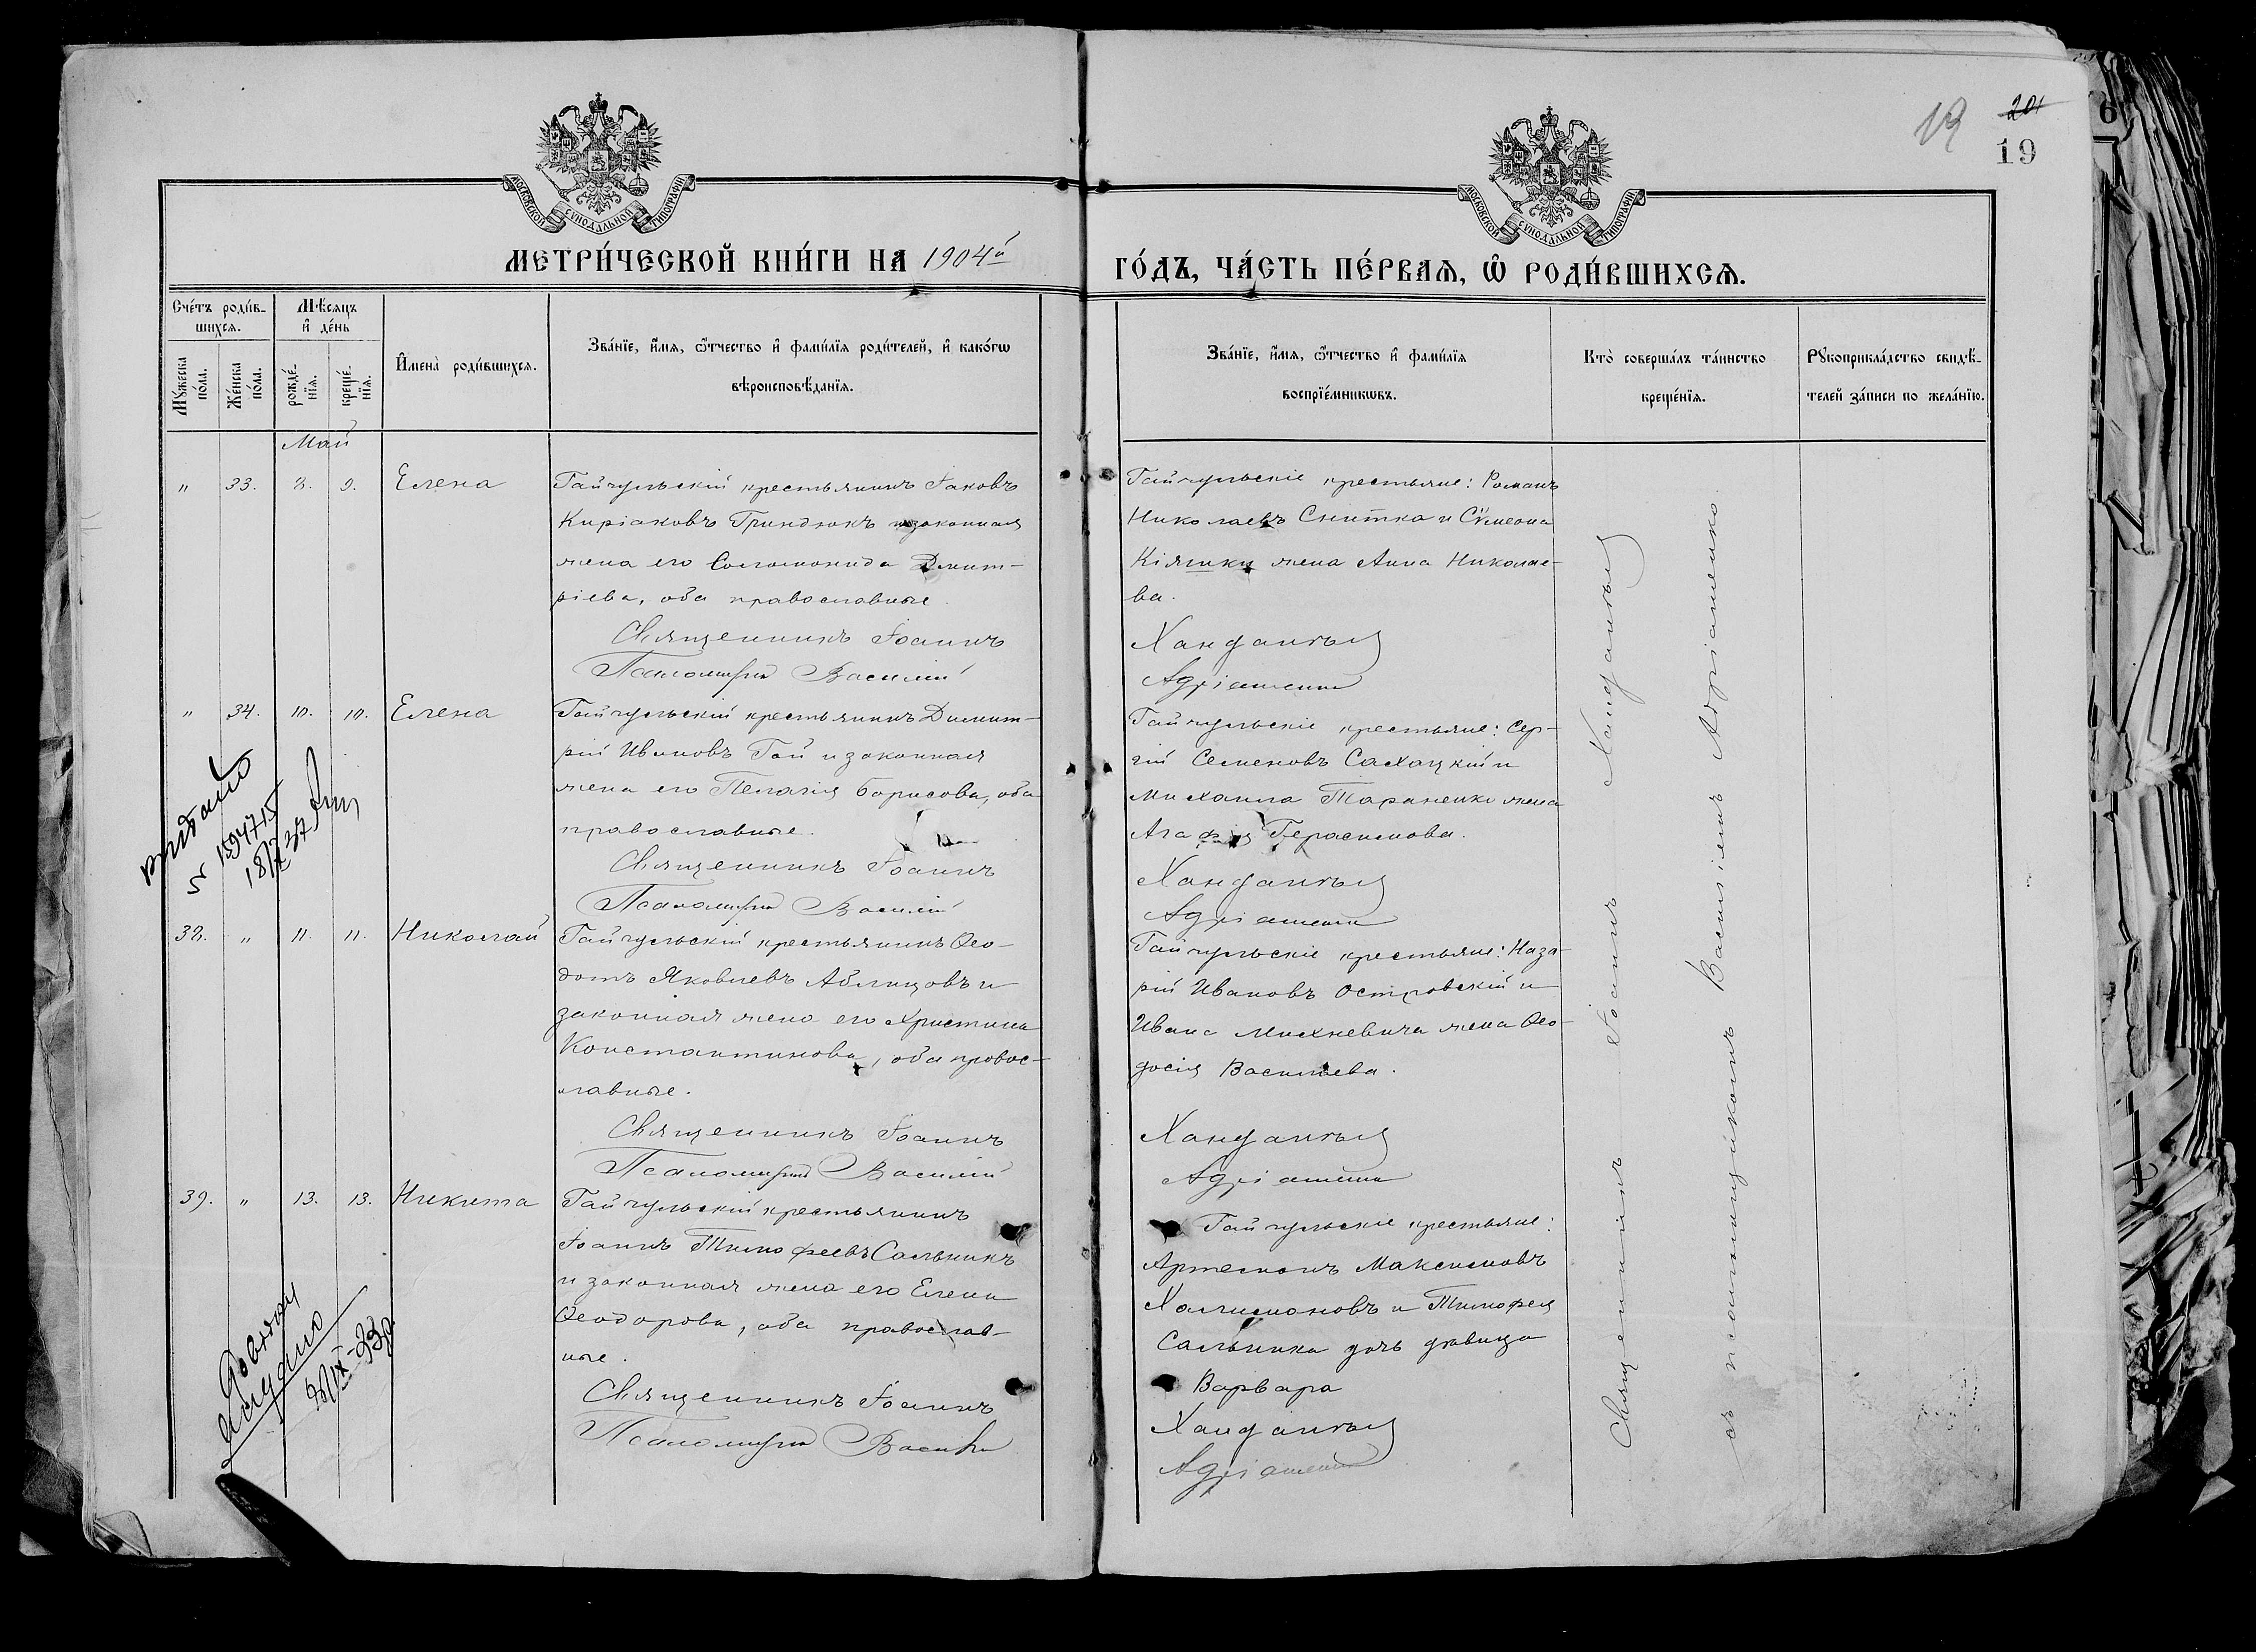 19
201
19
6
МОСКОВСКОЙ СУНОДАЛЬНОЙ ТИПОГРАФІИ
МОСКОВСКОЙ СУНОДАЛЬНОЙ ТИПОГРАФІИ
МЕТРИ́ЧЕСКОЙ КНИ́ГИ НА 1904й
ГО́ДЪ, ЧА́СТЬ ПЕ́РВАѦ, Ѽ РОДИ́ВШИХСѦ.
Сче́тъ роди́в-
шихсѧ.
Мꙋ́жеска
по́ла.
Же́нска
по́ла.
Мѣ́сѧцъ
и҆ де́нь
рожде́-
нїѧ.
креще́-
нїѧ.
И҆мена̀ роди́вшихсѧ.
Зва́нїе, и҆́мѧ, ѻ҆́тчество и҆ фами́лїѧ роди́телей, и҆ како́гѡ
вѣроисповѣ́данїѧ.
Зва́нїе, и҆́мѧ, ѻ҆́тчество и҆ фами́лїѧ
воспрїе́мникѡвъ.
Кто̀ соверша́лъ та́инство
креще́нїѧ.
Рꙋкоприкла́дство свидѣ́-
телей за́писи по жела́нїю.
Май
" 33. 8. 9. Елена
Гайчульскій крестьянинъ Іаковъ
Киріаковъ Гриндюкъ и законная
жена его Соломонида Димит-
ріева, оба православные.
Священникъ Іоаннъ
Псаломщикъ Василій
Гайчульскіе крестьяне: Романъ
Николаевъ Снитка и Сѵмеона
Кіяшки жена Анна Николае-
ва.
Ханданъ
Адріаненко
" 34. 10. 10. Елена
Гайчульскій крестьянинъ Димит-
рій Ивановъ Гай и законная
жена его Пелагія Борисова, оба
православные.
Священникъ Іоаннъ
Псаломщикъ Василій
Гайчульскіе крестьяне: Сер-
гій Семеновъ Сахацкій и
Михаила Тараненко жена
Агафія Герасимова.
Адріаненко
видано
18/X 37
38. " 11. 11. Николай
Гайчульскій крестьянинъ Ѳео-
дотъ Яковлевъ Аблицовъ и
законная жена его Христина
Константинова, оба правос-
лавные.
Священникъ Іоаннъ
Псаломщикъ Василій
Гайчульскіе крестьяне: Наза-
рій Ивановъ Островскій и
Ивана Михневича жена Ѳео-
досія Васильева.
Адріаненко
39. " 13. 13. Никита
Гайчульскій крестьянинъ
Іоаннъ Тимофеевъ Сальникъ
и законная жена его Елена
Ѳеодорова, оба православ-
ные.
Священникъ Іоаннъ
Псаломщикъ Василій
Гайчульскіе крестьяне:
Артемонъ Максимовъ
Халимоновъ и Тимофея
Сальника дочь дѣвица
Варвара
Адріаненко
Священникъ Іоаннъ
съ псаломщикомъ Василіемъ Адріаненко